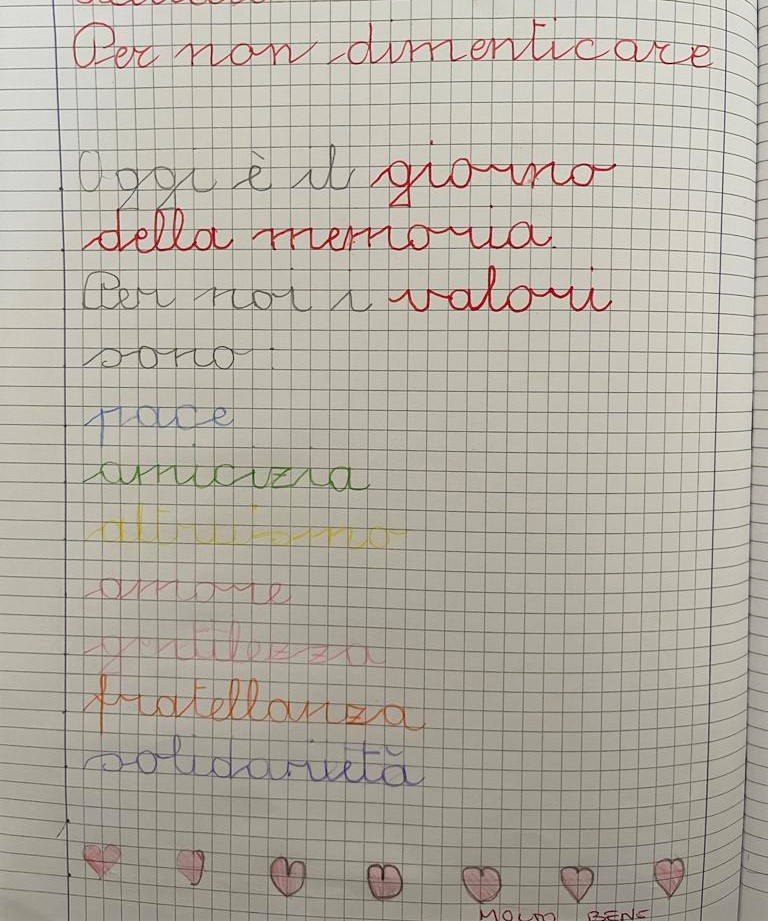 Per non dimenticare
Oggi è il giorno
della memoria
Per noi i valori
sono:
pace
amicizia
altruismo
amore
gentilezza
fratellanza
solidarietà
MOLTO BENE